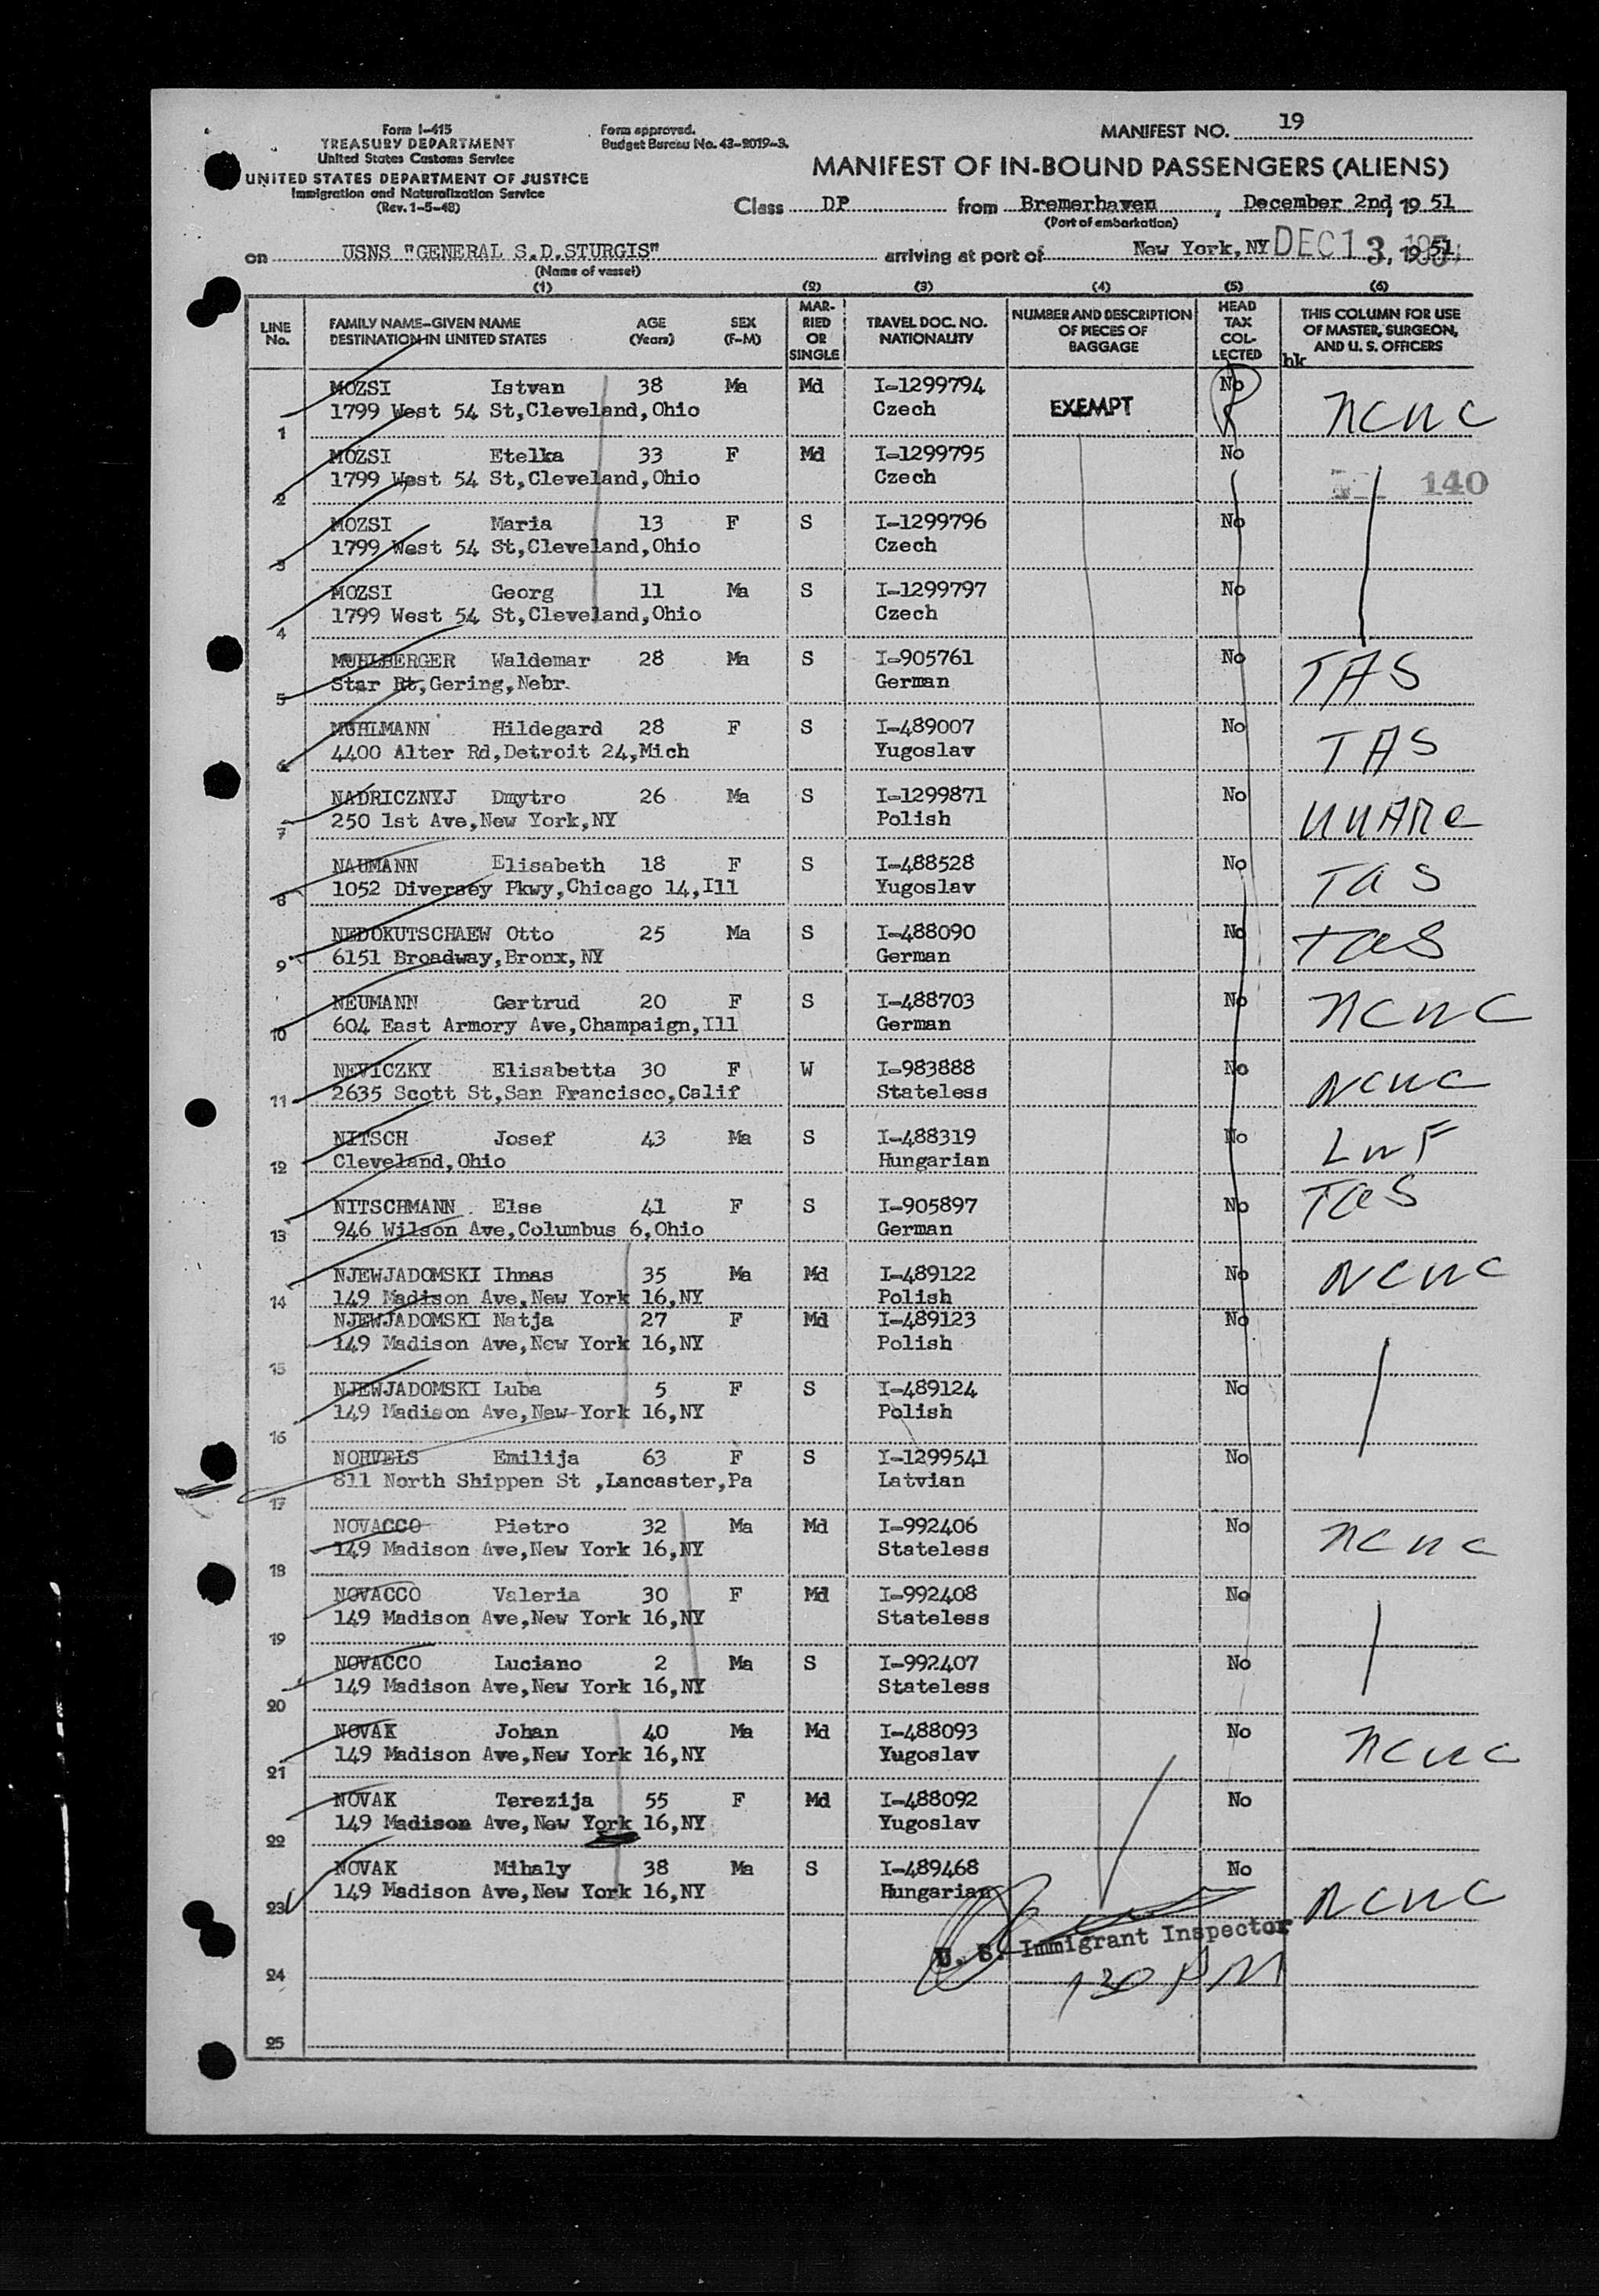 Form I-415
TREASURY DEPARTMENT
United States Customs Service
UNITED STATES DEPARTMENT OF JUSTICE
Immigration and Naturalization Service
(Rev. 1-5-48)
Form approved.
Budget Bureau No. 43-R019-3.
MANIFEST NO. 19
MANIFEST OF IN-BOUND PASSENGERS (ALIENS)
Class DP from Bremerhaven, December 2nd, 19 51
(Port of embarkation)
on USNS "GENERAL S.D.STURGIS" arriving at port of New York, NY DEC 13, 1951
(Name of vessel)
(1) (2) (3) (4) (5) (6)
LINE No. FAMILY NAME-GIVEN NAME DESTINATION IN UNITED STATES AGE (Years) SEX (F-M) MARRIED OR SINGLE TRAVEL DOC. NO. NATIONALITY NUMBER AND DESCRIPTION OF PIECES OF BAGGAGE HEAD TAX COLLECTED THIS COLUMN FOR USE OF MASTER, SURGEON, AND U. S. OFFICERS
hk
MOZSI Istvan 38 Ma Md I-1299794 No
1 1799 West 54 St,Cleveland,Ohio Czech EXEMPT NCWC
MOZSI Etelka 33 F Md I-1299795 No
2 1799 West 54 St,Cleveland,Ohio Czech 140
MOZSI Maria 13 F S I-1299796 No
3 1799 West 54 St,Cleveland,Ohio Czech
MOZSI Georg 11 Ma S I-1299797 No
4 1799 West 54 St,Cleveland,Ohio Czech
MUHLBERGER Waldemar 28 Ma S I-905761 No TAS
5 Star Rt,Gering,Nebr. German
MUHLMANN Hildegard 28 F S I-489007 No TAS
6 4400 Alter Rd,Detroit 24,Mich Yugoslav
NADRICZNYJ Dmytro 26 Ma S I-1299871 No
7 250 1st Ave,New York,NY Polish
NAUMANN Elisabeth 18 F S I-488528 No TAS
8 1052 Diversey Pkwy,Chicago 14,Ill Yugoslav
NEDOKUTSCHAEW Otto 25 Ma S I-488090 No TAS
9 6151 Broadway,Bronx,NY German
NEUMANN Gertrud 20 F S I-488703 No NCWC
10 604 East Armory Ave,Champaign,Ill German
NEVICZKY Elisabetta 30 F W I-983888 No NCWC
11 2635 Scott St,San Francisco,Calif Stateless
NITSCH Josef 43 Ma S I-488319 No LWF
12 Cleveland,Ohio Hungarian
NITSCHMANN Else 41 F S I-905897 No TAS
13 946 Wilson Ave,Columbus 6,Ohio German
NJEWJADOMSKI Ihnas 35 Ma Md I-489122 No NCWC
14 149 Madison Ave,New York 16,NY Polish
NJEWJADOMSKI Natja 27 F Md I-489123 No
15 149 Madison Ave,New York 16,NY Polish
NJEWJADOMSKI Luba 5 F S I-489124 No
16 149 Madison Ave,New York 16,NY Polish
NORVELS Emilija 63 F S I-1299541 No
17 811 North Shippen St ,Lancaster,Pa Latvian
NOVACCO Pietro 32 Ma Md I-992406 No NCWC
18 149 Madison Ave,New York 16,NY Stateless
NOVACCO Valeria 30 F Md I-992408 No
19 149 Madison Ave,New York 16,NY Stateless
NOVACCO Luciano 2 Ma S I-992407 No
20 149 Madison Ave,New York 16,NY Stateless
NOVAK Johan 40 Ma Md I-488093 No NCWC
21 149 Madison Ave,New York 16,NY Yugoslav
NOVAK Terezija 55 F Md I-488092 No
22 149 Madison Ave,New York 16,NY Yugoslav
NOVAK Mihaly 38 Ma S I-489468 No
23 149 Madison Ave,New York 16,NY Hungarian NCWC
U. S. Immigrant Inspector
24 130 PM
25